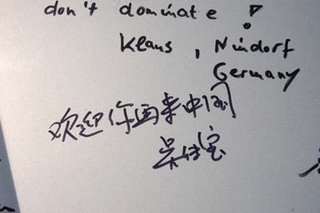 don't dominate !
Klaus , Nindorf
Germany
欢迎你再来中国
吴佳宝